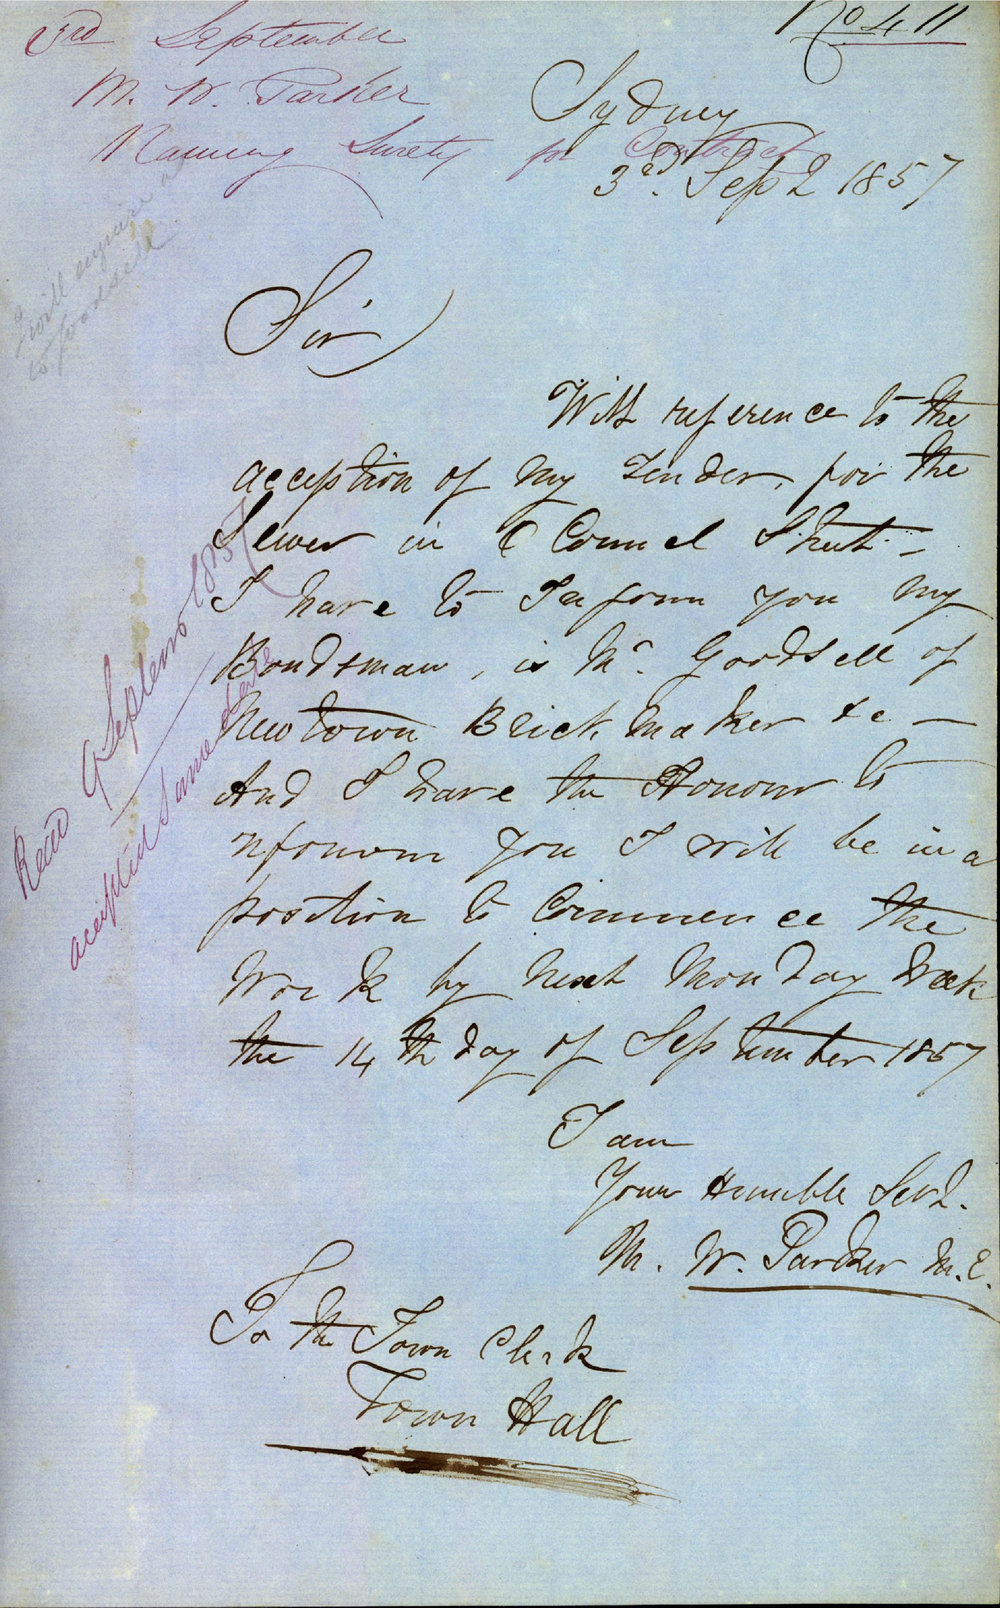 No 411
3rd September
M. W. Parker
Naming Surety for Contract
Sydney
3rd. Sept 1857
I will enquire as
to Goodsell
Sir
With reference to the
acception of my Tender, for the
Sewer in O Connel Street –
I have to Inform you my
Bondsman, is Mr. Goodsell of
Newtown Brick maker &c –
And I have the Honour to
nfonom you I will be in a
position to Commence the
Work by next Monday Week
the 14 th day of September 1857
I am
Your Humble Servt.
M. W. Parker M.E.
To the Town Clerk
Town Hall
Read 9 Septem 1857
accepted same date